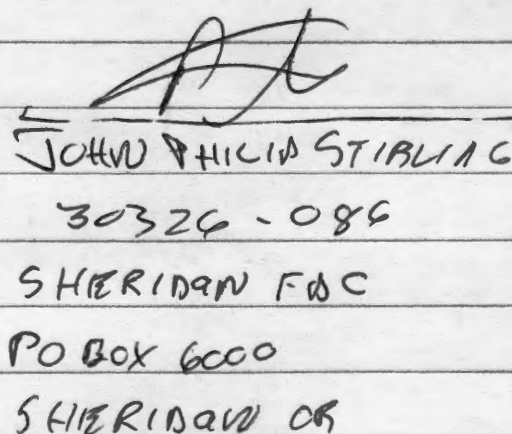 JOHN PHILIP STIRLING
30326-086
SHERIDAN FDC
PO BOX 6000
SHERIDAN OR